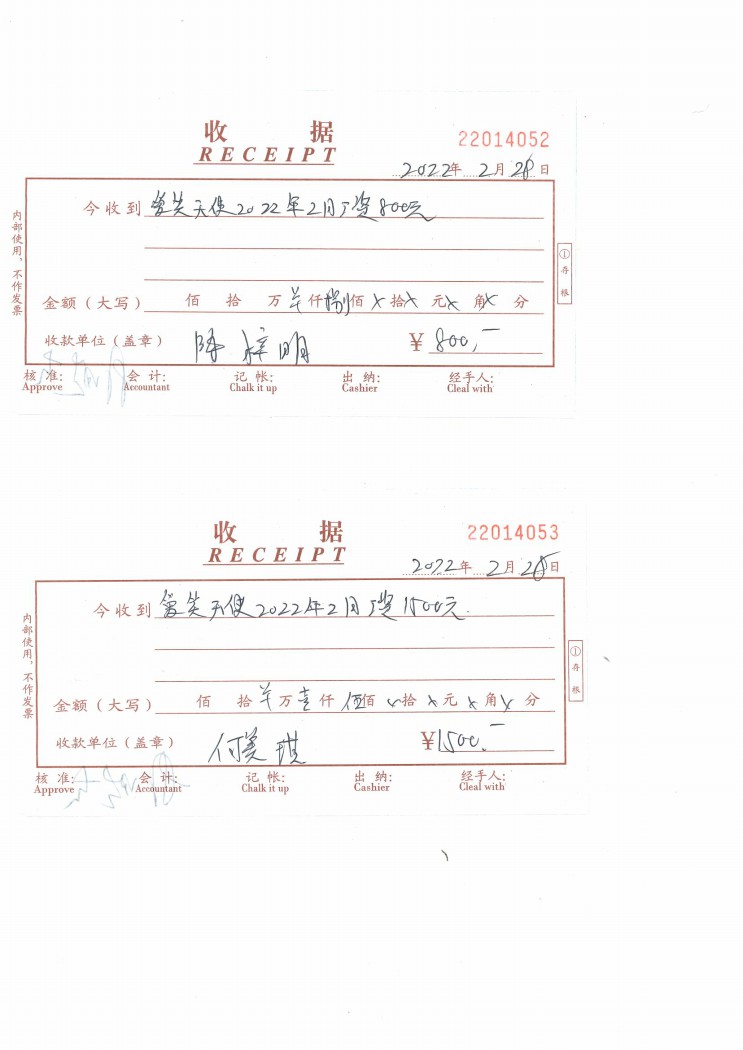 收 据
RECEIPT
22014052
2022年 2月 28日
今收到 爱笑天使2022年2月工资800元
金额（大写） 佰 拾 万 羊 仟 捌 佰 x 拾 x 元 x 角 x 分
收款单位（盖章） 陈梓明 ¥ 800,—
核 准: 会 计: 记 帐: 出 纳: 经手人:
Approve Accountant Chalk it up Cashier Cleal with
内部使用，不作发票
① 存根
收 据
RECEIPT
22014053
2022年 2月 28日
今收到 爱笑天使2022年2月工资1500元.
金额（大写） 佰 拾 羊 万 壹 仟 伍 佰 x 拾 x 元 x 角 x 分
收款单位（盖章） 付美琪 ¥1500.—
核 准: 会 计: 记 帐: 出 纳: 经手人:
Approve Accountant Chalk it up Cashier Cleal with
内部使用，不作发票
① 存根